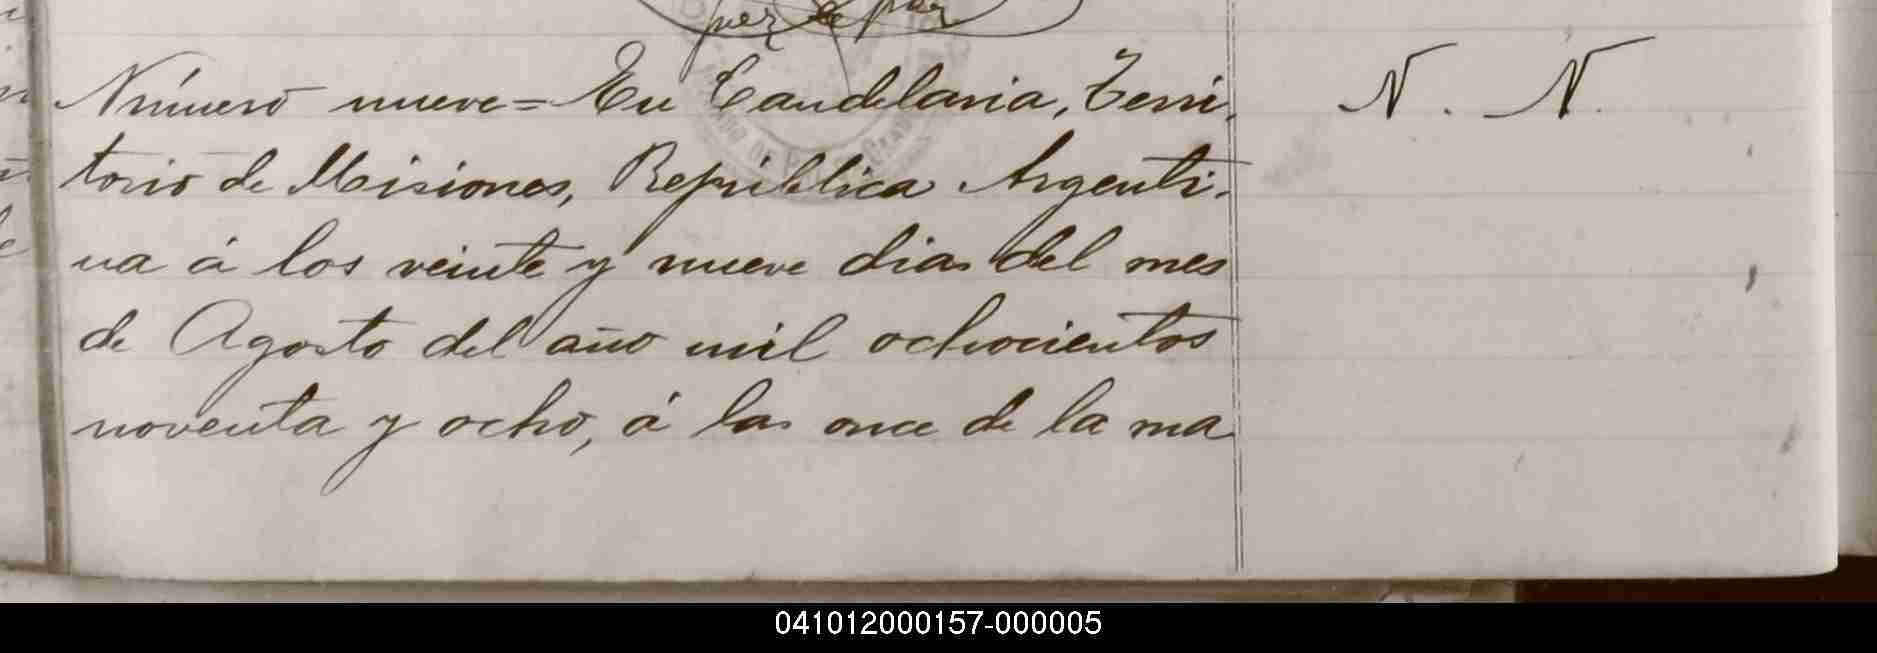 Número nueve = En Candelaria, Terri- N. N.
torio de Misiones, República Argenti-
na á los veinte y nueve dias del mes
de Agosto del año mil ochocientos
noventa y ocho, á las once de la ma
041012000157-000005